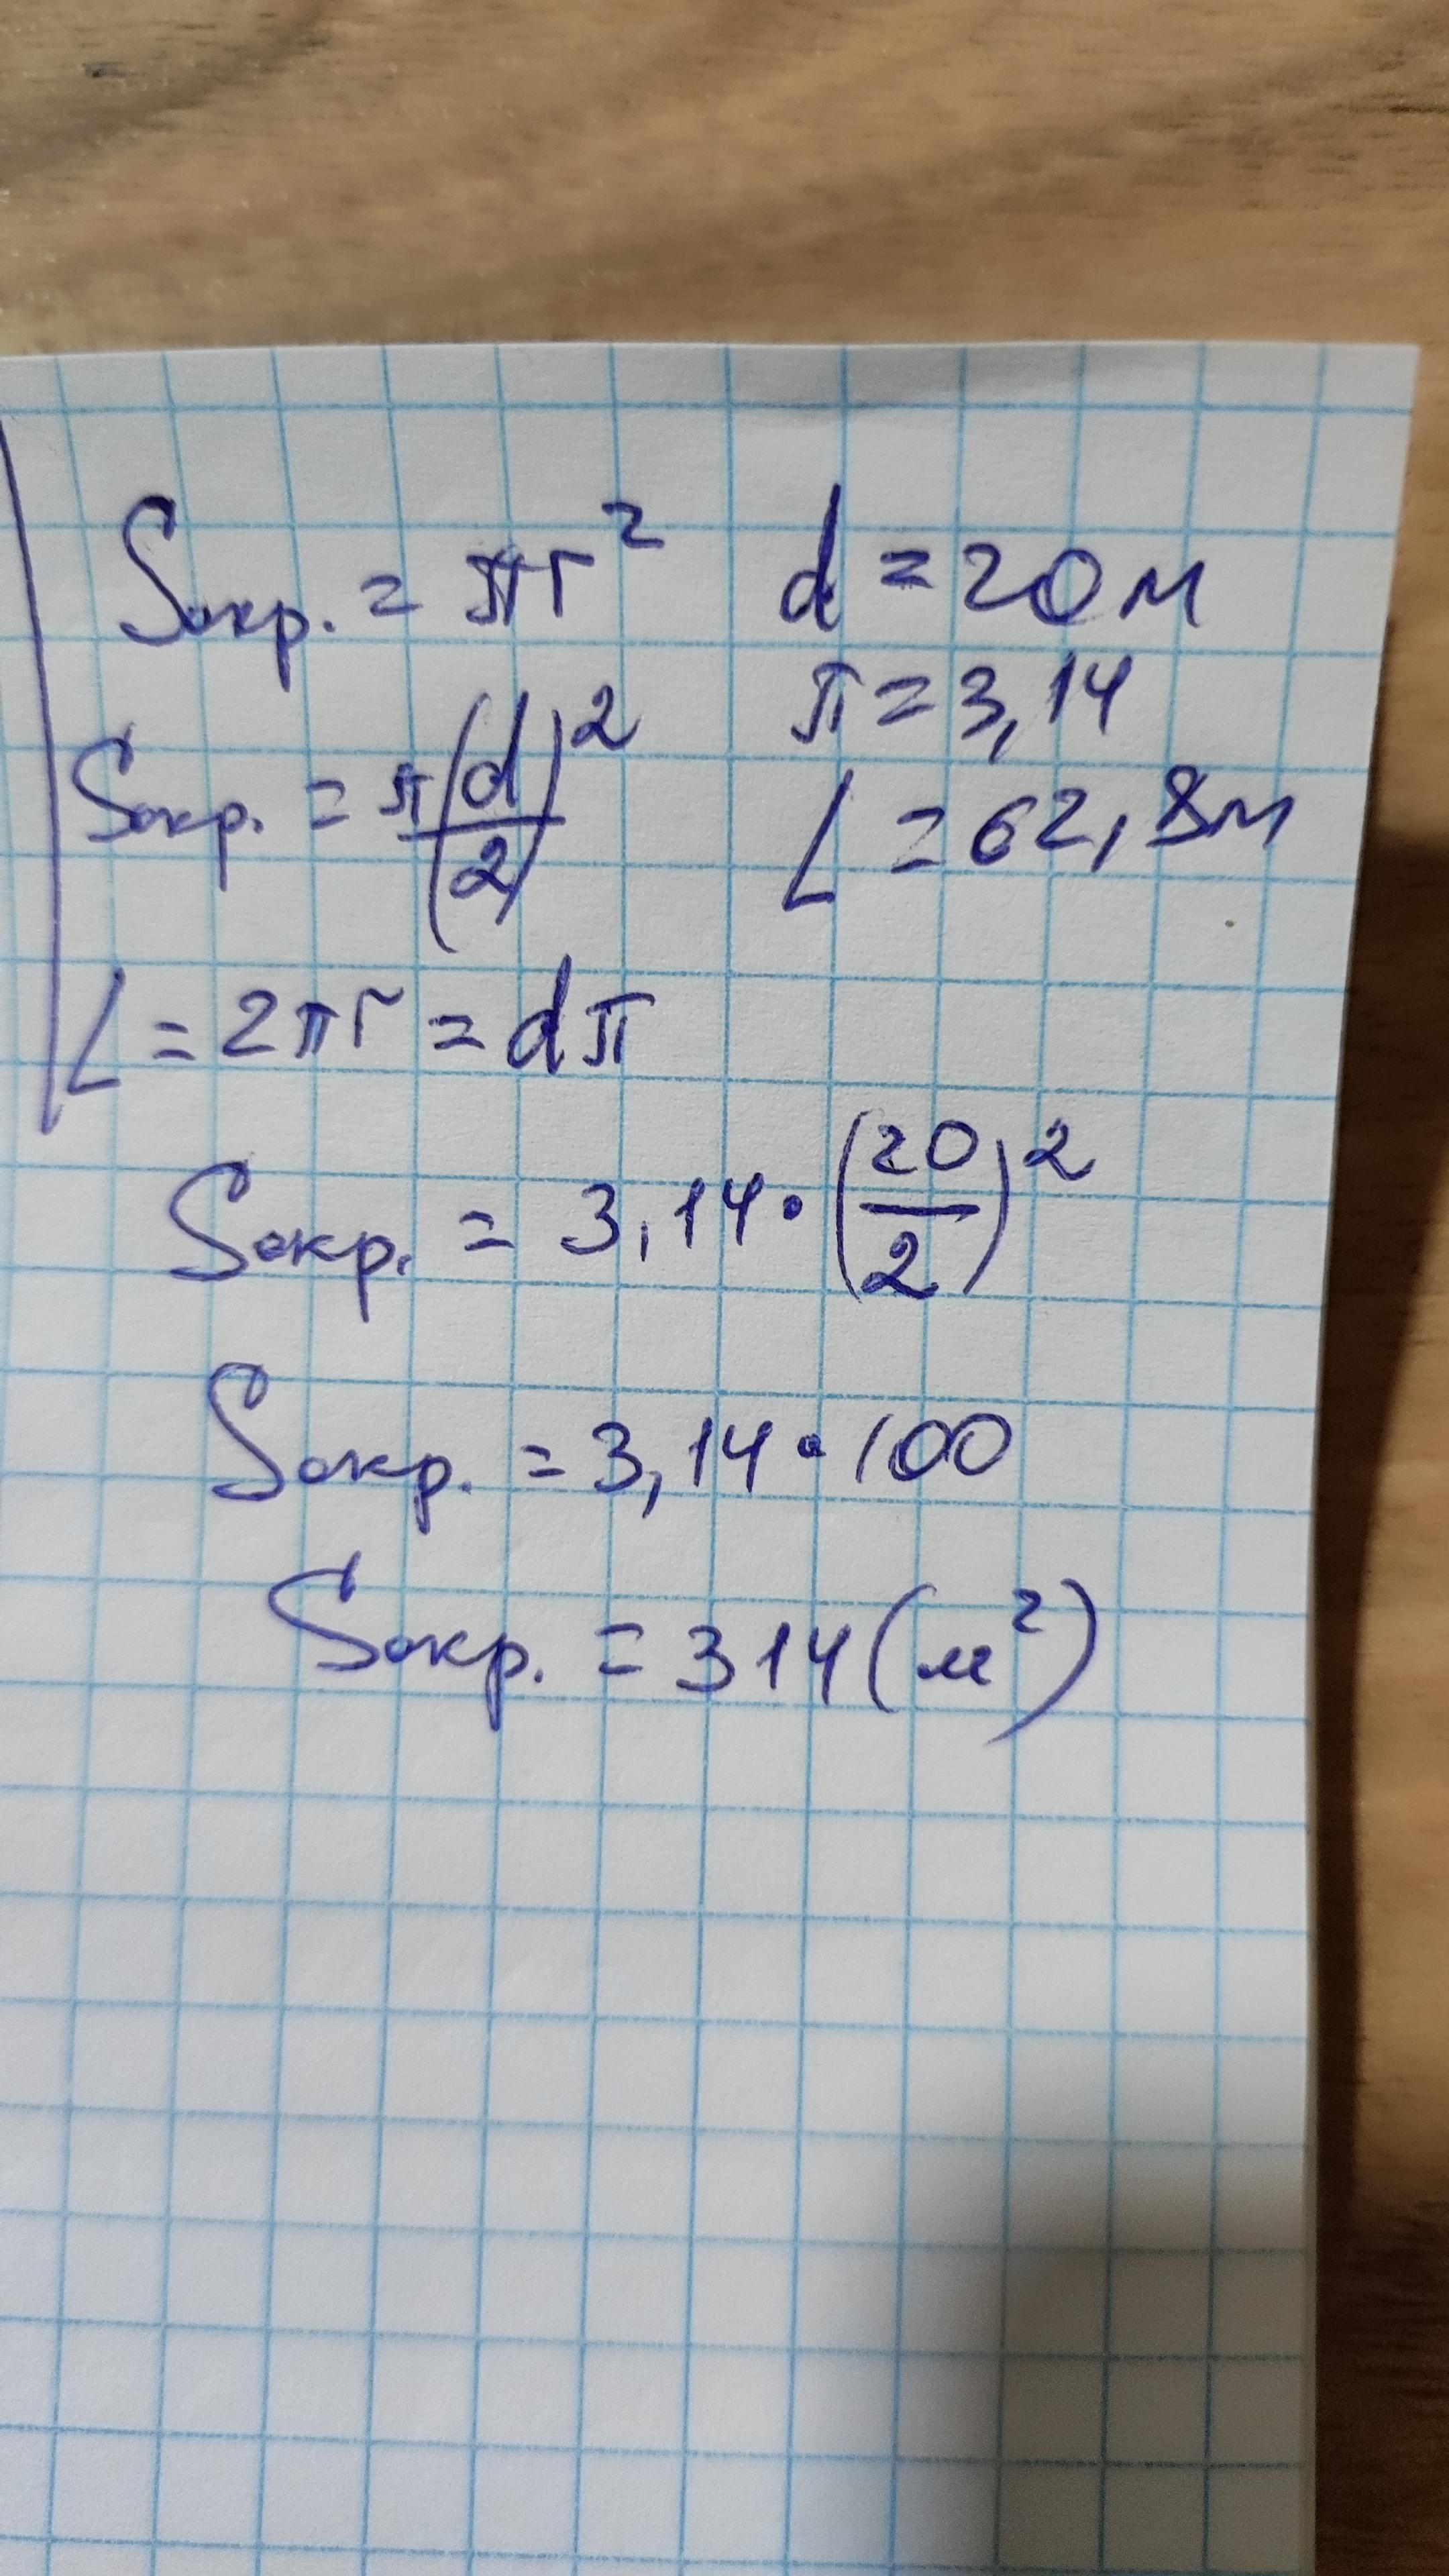 Sокр. = πr² d = 20 м
π = 3,14
Sокр. = π(d/2)² L = 62,8 м
L = 2πr = dπ
Sокр. = 3,14 · (20/2)²
Sокр. = 3,14 · 100
Sокр. = 314 (м²)